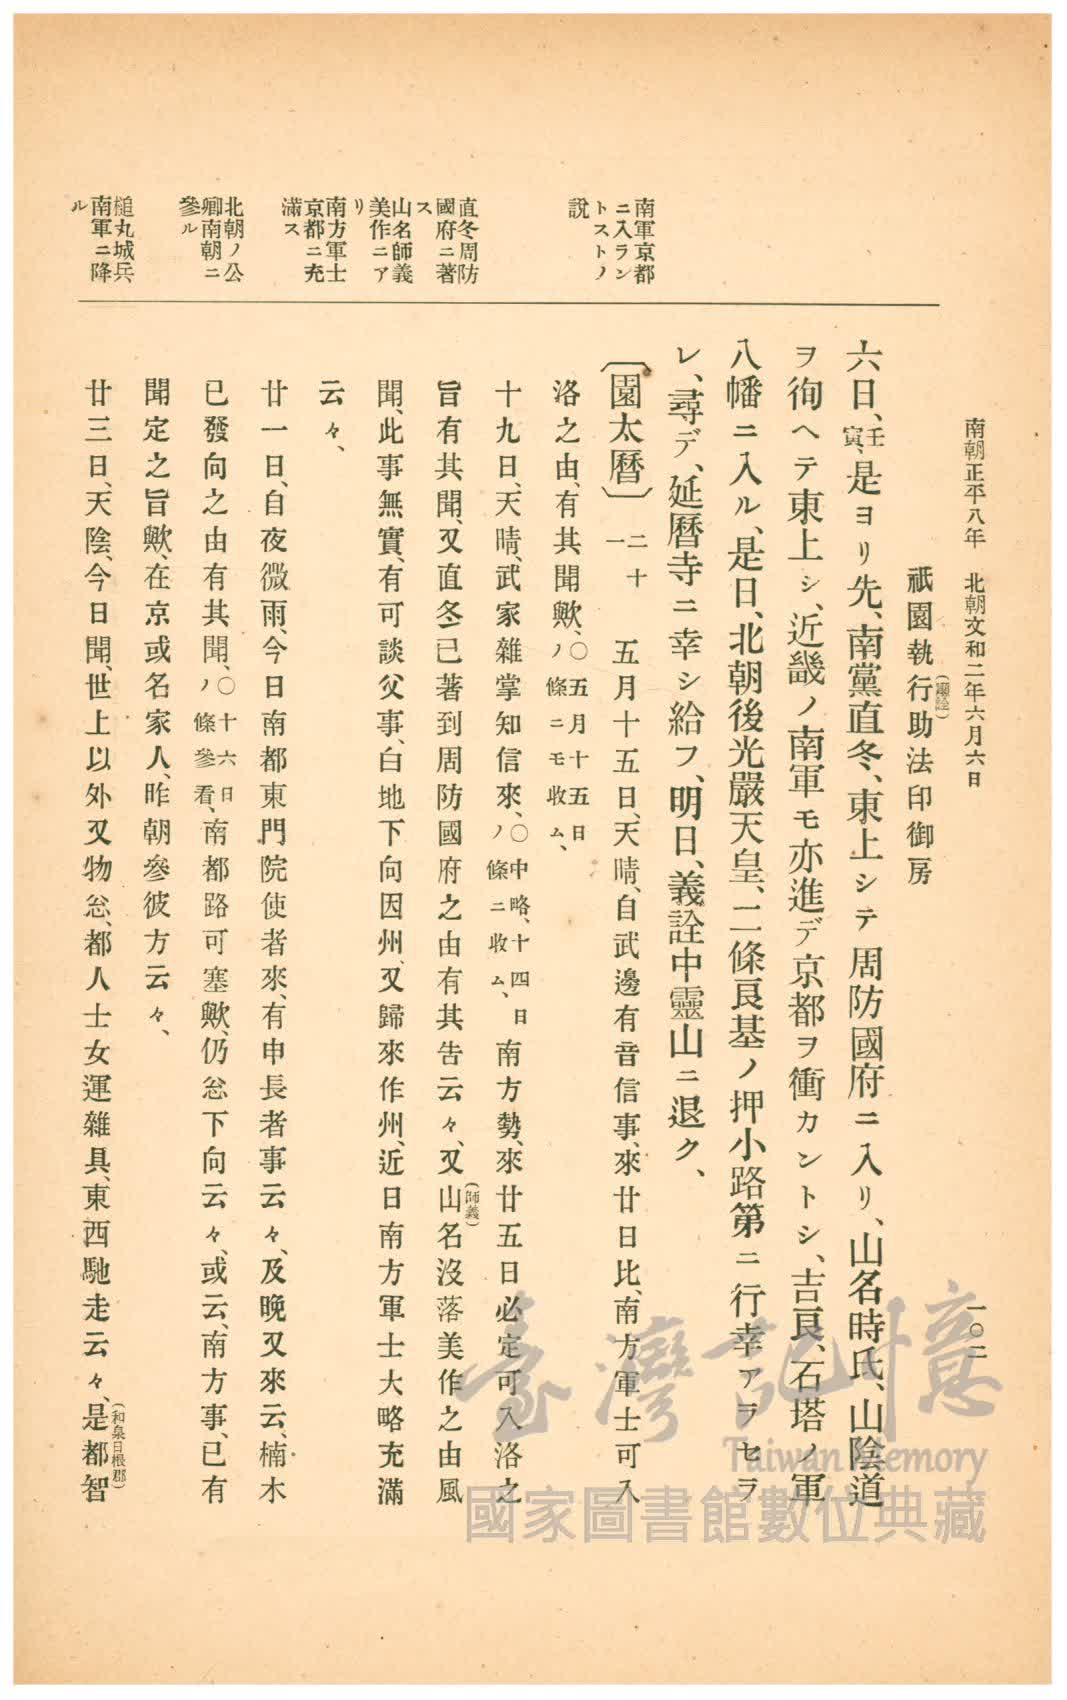 南朝正平八年　北朝文和二年六月六日
一〇二
祇園執行助法印御房
(顯詮)
六日、壬寅、是ヨリ先、南黨直冬、東上シテ周防國府ニ入リ、山名時氏、山陰道
ヲ徇ヘテ東上シ、近畿ノ南軍モ亦進デ京都ヲ衝カントシ、吉良、石塔ノ軍
八幡ニ入ル、是日、北朝後光嚴天皇、二條良基ノ押小路第ニ行幸アラセラ
レ、尋デ、延曆寺ニ幸シ給フ、明日、義詮中靈山ニ退ク、
〔園太曆〕二十一　五月十五日、天晴、自武邊有音信事、來廿日比、南方軍士可入
洛之由、有其聞歟、〇五月十五日ノ條ニモ收ム、
十九日、天晴、武家雜掌知信來、〇中略、十四日ノ條ニ收ム、南方勢、來廿五日必定可入洛之
旨有其聞、又直冬已著到周防國府之由有其告云々、又山名(師義)沒落美作之由風
聞、此事無實、有可談父事、白地下向因州、又歸來作州、近日南方軍士大略充滿
云々、
廿一日、自夜微雨、今日南都東門院使者來、有申長者事云々、及晚又來云、楠木
已發向之由有其聞、〇十六日ノ條參看、南都路可塞歟、仍忩下向云々、或云、南方事、已有
聞定之旨歟、在京或名家人、昨朝參彼方云々、
廿三日、天陰、今日聞、世上以外又物忩、都人士女運雜具、東西馳走云々、是都智
(和泉日根郡)
南軍京都
ニ入ラン
トストノ
說
直冬周防
國府ニ著
ス
山名師義
美作ニア
リ
南方軍士
京都ニ充
滿ス
北朝ノ公
卿南朝ニ
參ル
槌丸城兵
南軍ニ降
ル
臺灣記憶
Taiwan Memory
國家圖書館數位典藏